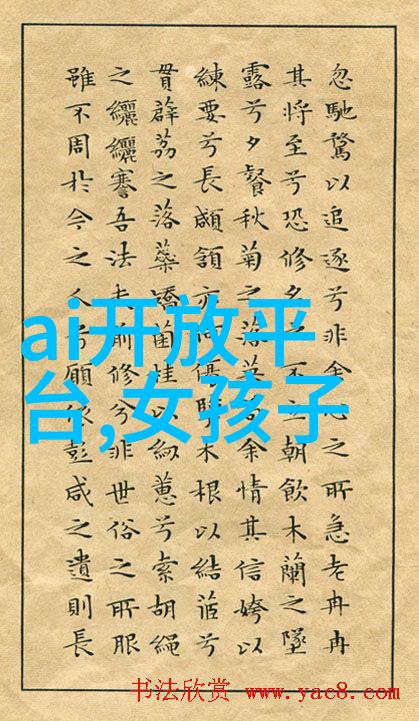 忽馳騖以追逐兮非余心之所急老冉冉
其將至兮恐修名之不立朝飲木蘭之墜
露兮夕餐秋菊之落英苟余情其信姱以
練要兮長顑頷亦何傷擥木根以結茝兮
貫薜荔之落蘂矯菌桂以紉蕙兮索胡繩
之纚纚謇吾法夫前修兮非世俗之所服
雖不周於今之人兮願依彭咸之遺則長
ai开放平
台,女孩子
书法欣赏 www.yac8.com